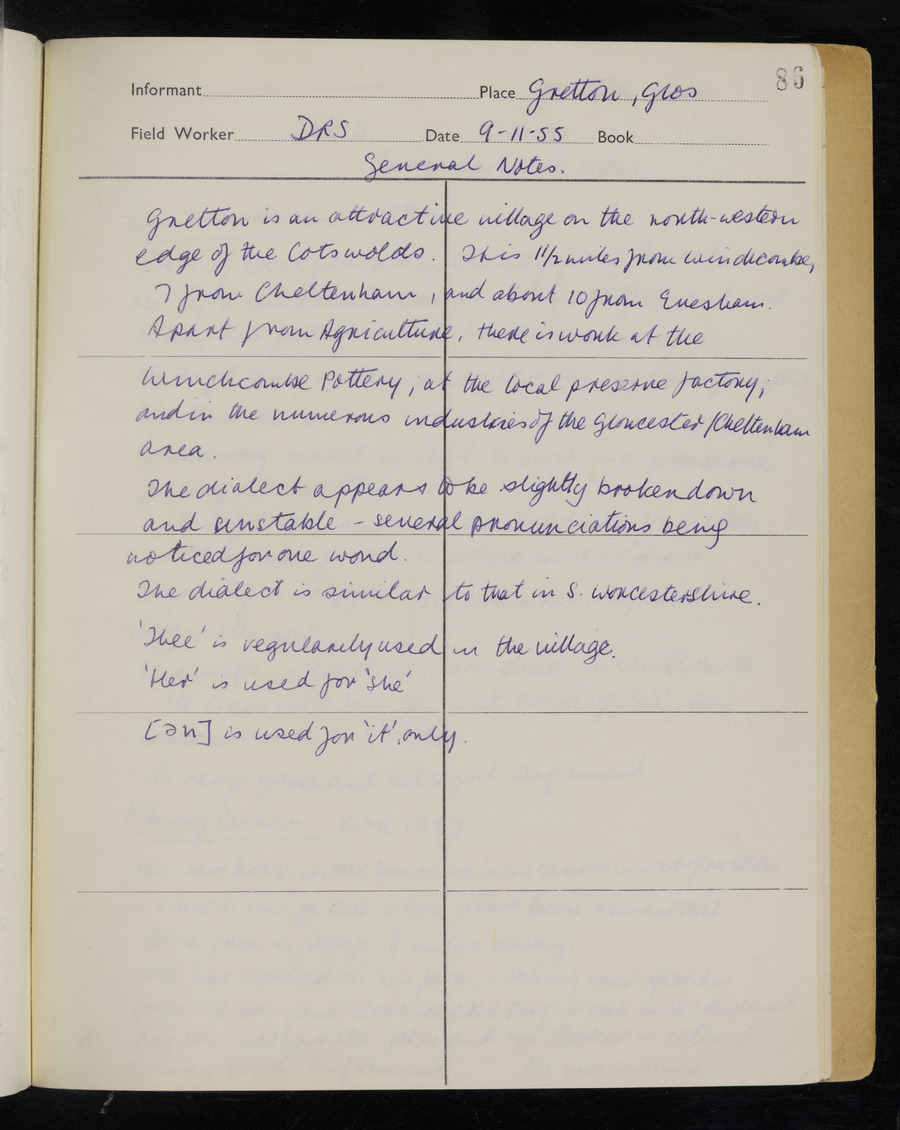 86
Informant Place Gretton, Glos
Field Worker DRS Date 9-11-55 Book
General Notes.
Gretton is an attractive village on the north-western
edge of the Cotswolds. It is 1 1/2 miles from Winchcombe,
7 from Cheltenham, and about 10 from Evesham.
Apart from Agriculture, there is work at the
Winchcombe Pottery; at the local preserve factory;
and in the numerous industries of the Gloucester/Cheltenham
area.
The dialect appears to be slightly broken down
and unstable - several pronunciations being
noticed for one word.
The dialect is similar to that in S. Worcestershire.
'Thee' is regularly used in the village.
'Her' is used for 'she'
[ən] is used for 'it', only.